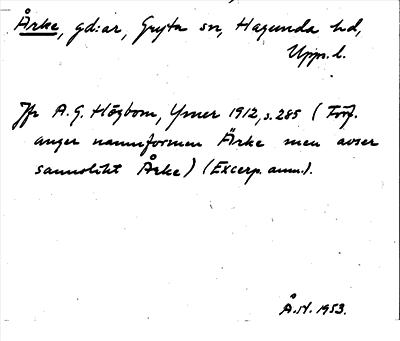 Årke, gd:ar, Gryta sn, Hagunda hd,
Upps. l.
Jfr A. G. Högbom, Ymer 1912, s. 285 (Förf.
anger namnformen Ärke men avser
sannolikt Årke) (Excerp. anm.).
Å. St. 1953.